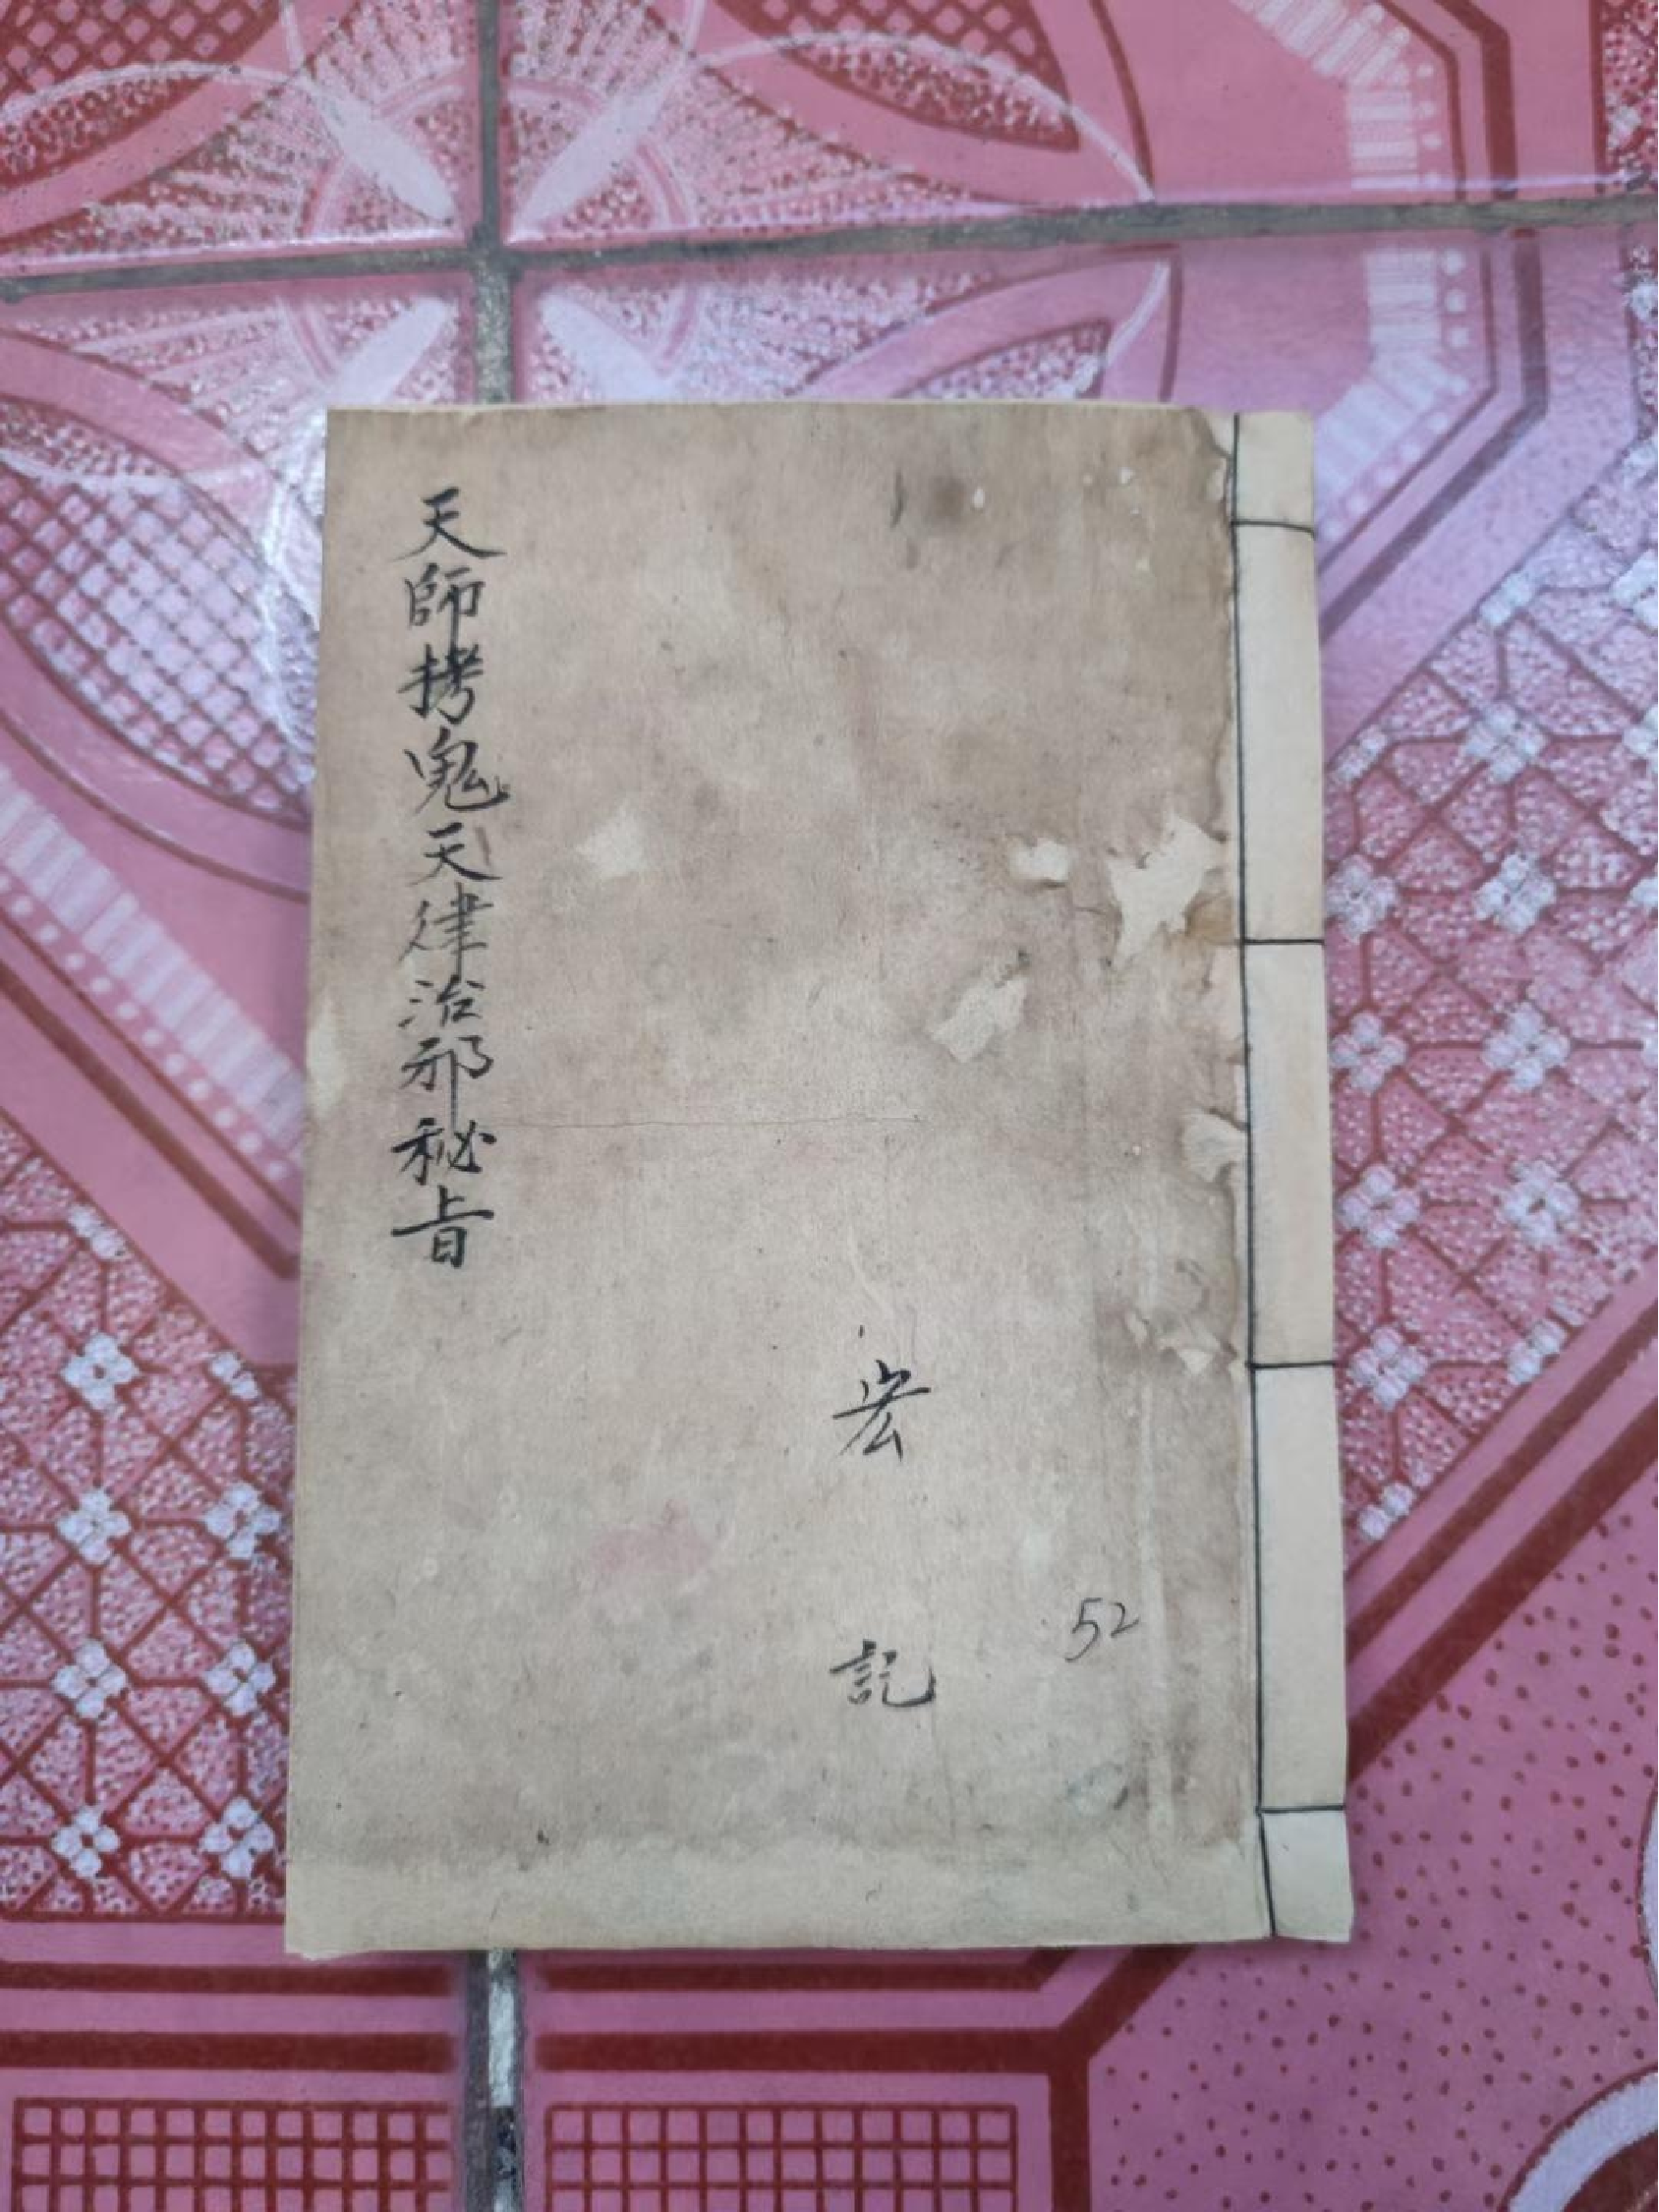 天師拷鬼天律治邪秘旨
宏記
52